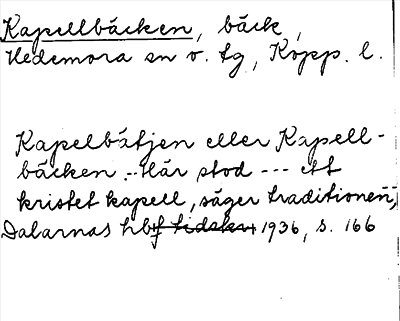 Kapellbäcken, bäck,
Hedemora sn o. tg, Kopp. l.
Kapelbätjen eller Kapell-
bäcken -- Här stod --- ett
kristet kapell, säger traditionen",
Dalarnas hbf tidskr 1936, s. 166